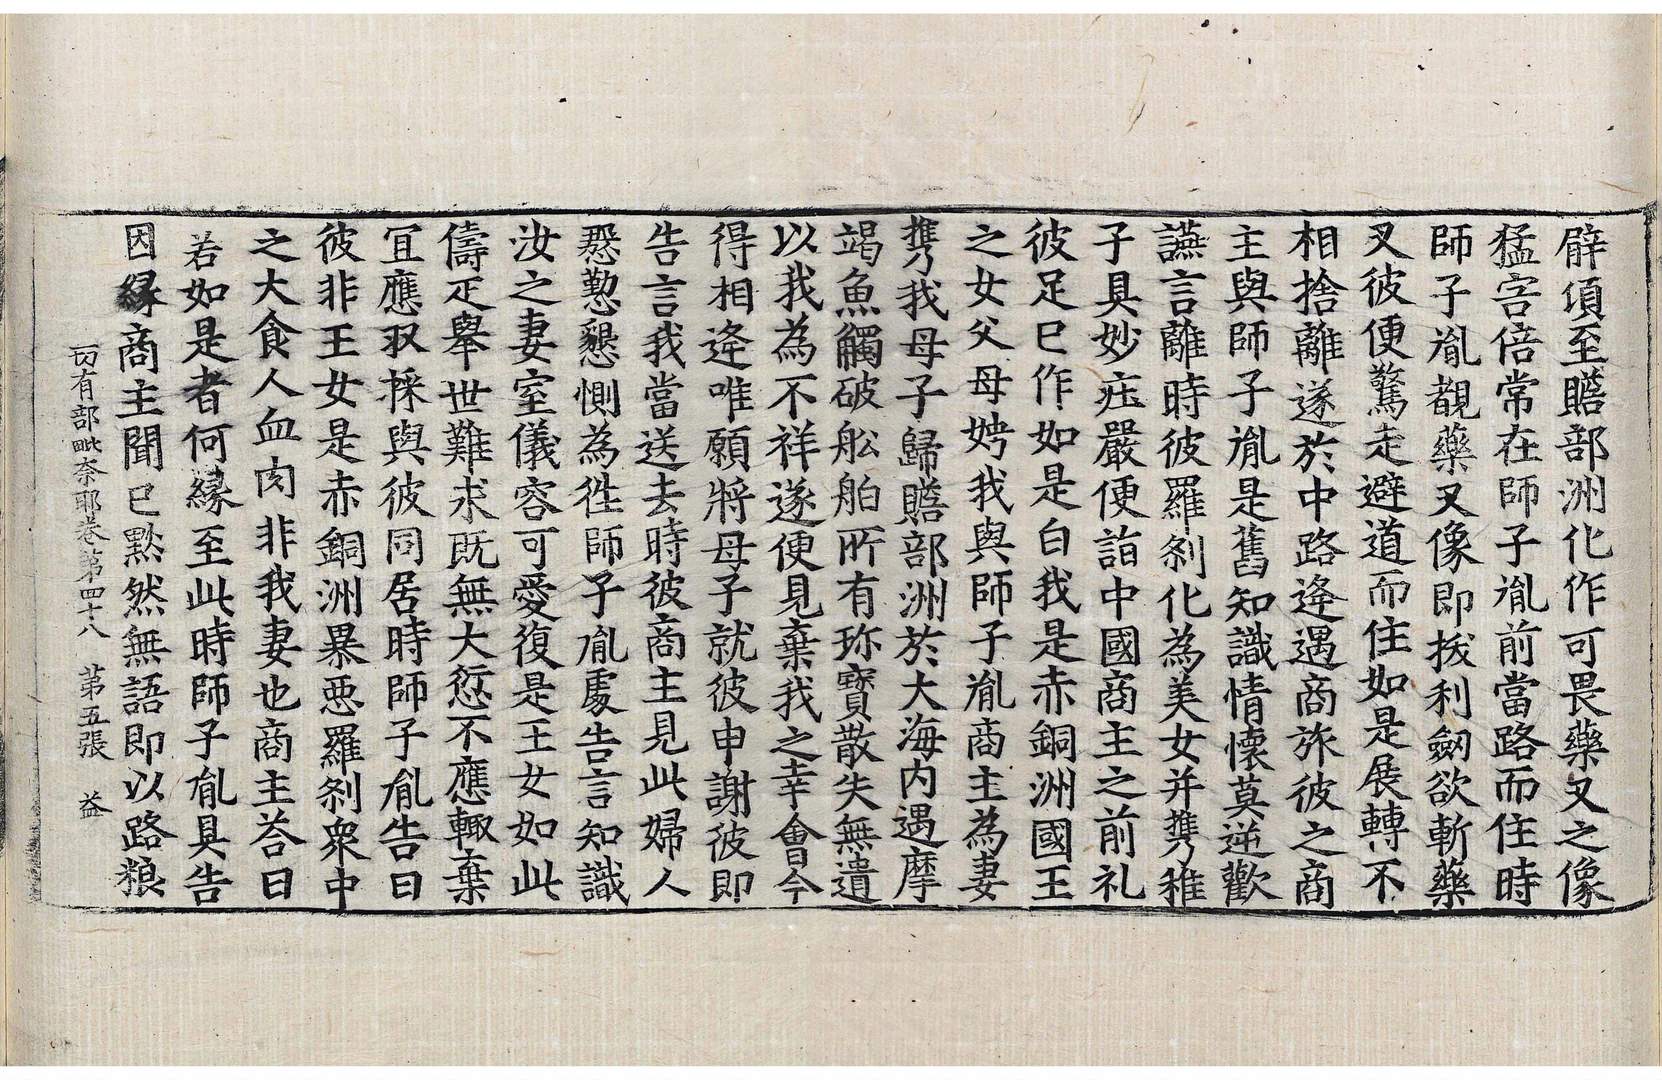 臂頃至贍部洲化作可畏藥叉之像
猛害倍常在師子胤前當路而住時
師子胤覩藥叉像即拔利劒欲斬藥
叉彼便驚走避道而住如是展轉不
相捨離遂於中路逄遇商旅彼之商
主與師子胤是舊知識情懷莫逆歡
讌言離時彼羅剎化為美女并携稚
子具妙莊嚴便詣中國商主之前礼
彼足已作如是白我是赤銅洲國王
之女父母娉我與師子胤商主為妻
携我母子歸贍部洲於大海內遇摩
竭魚觸破舩舶所有珎寶散失無遺
以我為不祥遂便見棄我之幸會今
得相逄唯願將母子就彼申謝彼即
告言我當送去時彼商主見此婦人
慇懃懇惻為徃師子胤處告言知識
汝之妻室儀容可愛復是王女如此
儔疋舉世難求既無大愆不應輙棄
冝應収採與彼同居時師子胤告曰
彼非王女是赤銅洲暴惡羅剎衆中
之大食人血肉非我妻也商主荅曰
若如是者何縁至此時師子胤具告
因縁商主聞已黙然無語即以路粮
一切有部毗奈耶卷第四十八　第五張　益